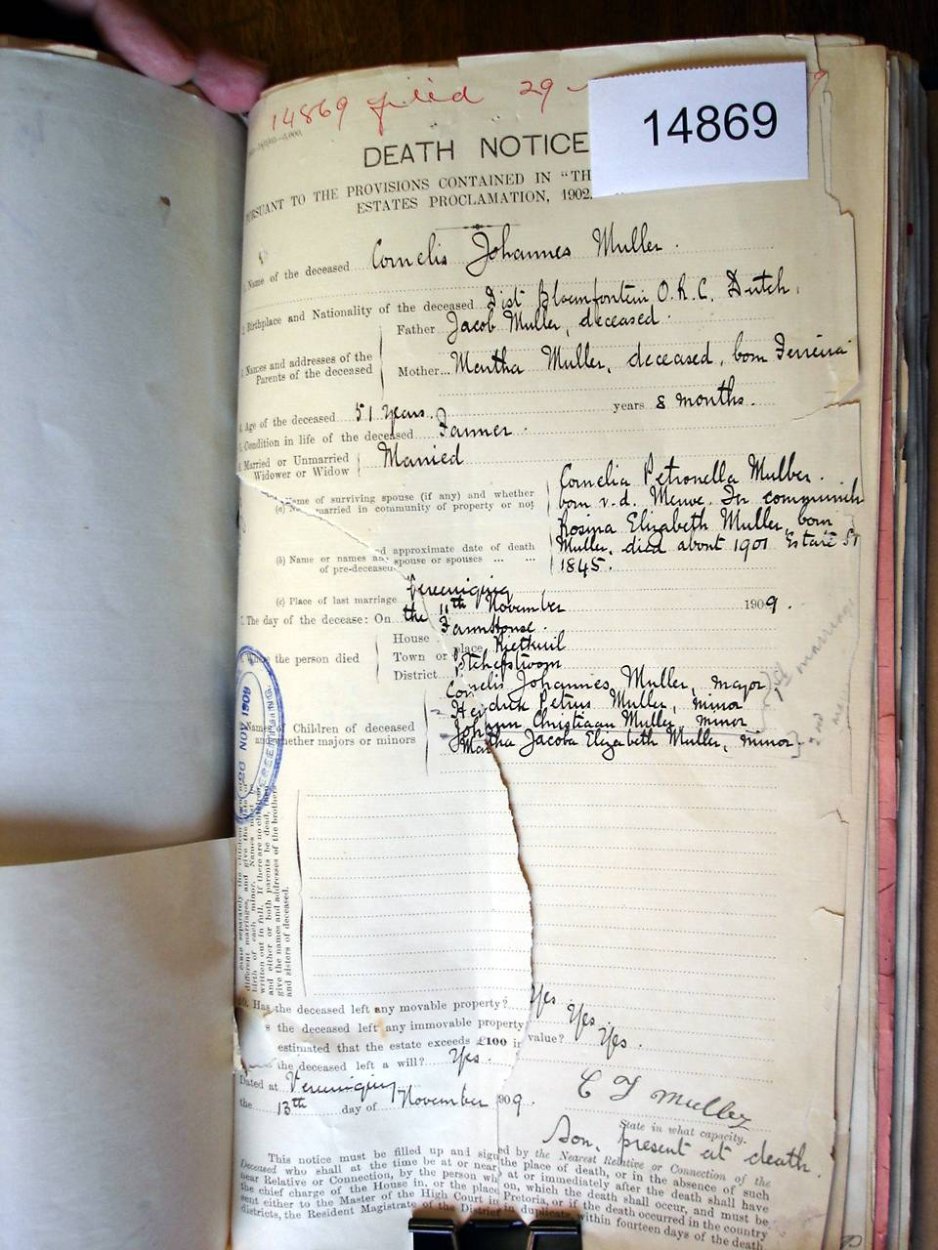 14869 filed 29
14869
DEATH NOTICE
PURSUANT TO THE PROVISIONS CONTAINED IN "TH
ESTATES PROCLAMATION, 1902.
Name of the deceased Cornelis Johannes Muller.
Birthplace and Nationality of the deceased Dist Bloemfontein O.R.C. Dutch.
Names and addresses of the Parents of the deceased
Father Jacob Muller, deceased.
Mother... Martha Muller, deceased, born Ferreira
Age of the deceased 51 years. years 8 months.
Condition in life of the deceased Farmer.
Married or Unmarried Widower or Widow Married
(a) Name of surviving spouse (if any) and whether married in community of property or not
Cornelia Petronella Muller.
born v.d. Merwe. In
Rosina Elizabeth Muller, born
Muller, died about 1901 Estate
1845.
(b) Name or names and approximate date of death
of pre-deceased spouse or spouses ... ...
(c) Place of last marriage Vereeniging
The day of the decease: On the 11th November 1909.
Where the person died
House Farmhouse.
Town or place Rietkuil
District Potchefstroom
Names of Children of deceased
and whether majors or minors
Cornelis Johannes Muller, major
Hendrik Petrus Muller, minor
Johann Christiaan Muller, minor
Martha Jacoba Elizabeth Muller, minor.
20 NOV 1909
different marriages, and give the
birth of each minor. Names must be
written out in full. If there are no children
and either or both parents be dead, then
give the names and addresses of the brothers
and sisters of deceased.
10. Has the deceased left any movable property? Yes
the deceased left any immovable property Yes
estimated that the estate exceeds £100 in value? Yes.
the deceased left a will? Yes.
Dated at Vereeniging
the 13th day of November 1909.
C J Muller
State in what capacity.
Son, present at death.
This notice must be filled up and signed by the Nearest Relative or Connection of the
Deceased who shall at the time be at or near the place of death, or in the absence of such
near Relative or Connection, by the person who at or immediately after the death shall have
the chief charge of the House in, or the place on, which the death shall occur, and must be
sent either to the Master of the High Court in Pretoria, or if the death occurred in the country
districts, the Resident Magistrate of the District in duplicate, within fourteen days of the death